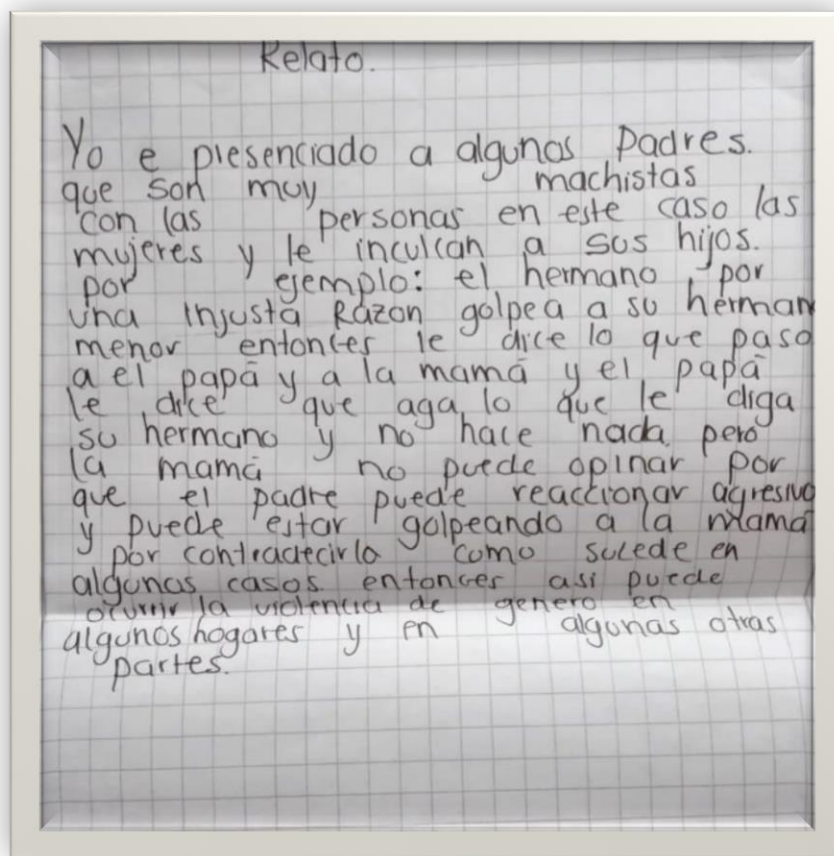 Relato.
Yo e presenciado a algunos Padres.
que son muy machistas
con las personas en este caso las
mujeres y le inculcan a sus hijos.
por ejemplo: el hermano, por
una injusta Razon golpea a su herman
menor entonces le dice lo que paso
a el papá y a la mamá y el papá
le dice que aga lo que le diga
su hermano y no hace nada pero
la mamá no puede opinar por
que el padre puede reaccionar agresivo
y puede estar golpeando a la mamá
por contradecirlo como sucede en
algunas casos. entonces asi puede
ocurrir la violencia de genero en
algunos hogares y en algunas otras
partes.